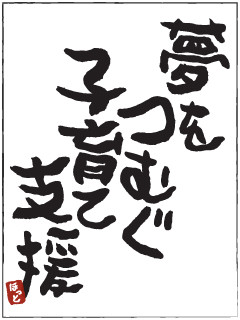 夢を
つむぐ
子育て
支援
ほっと